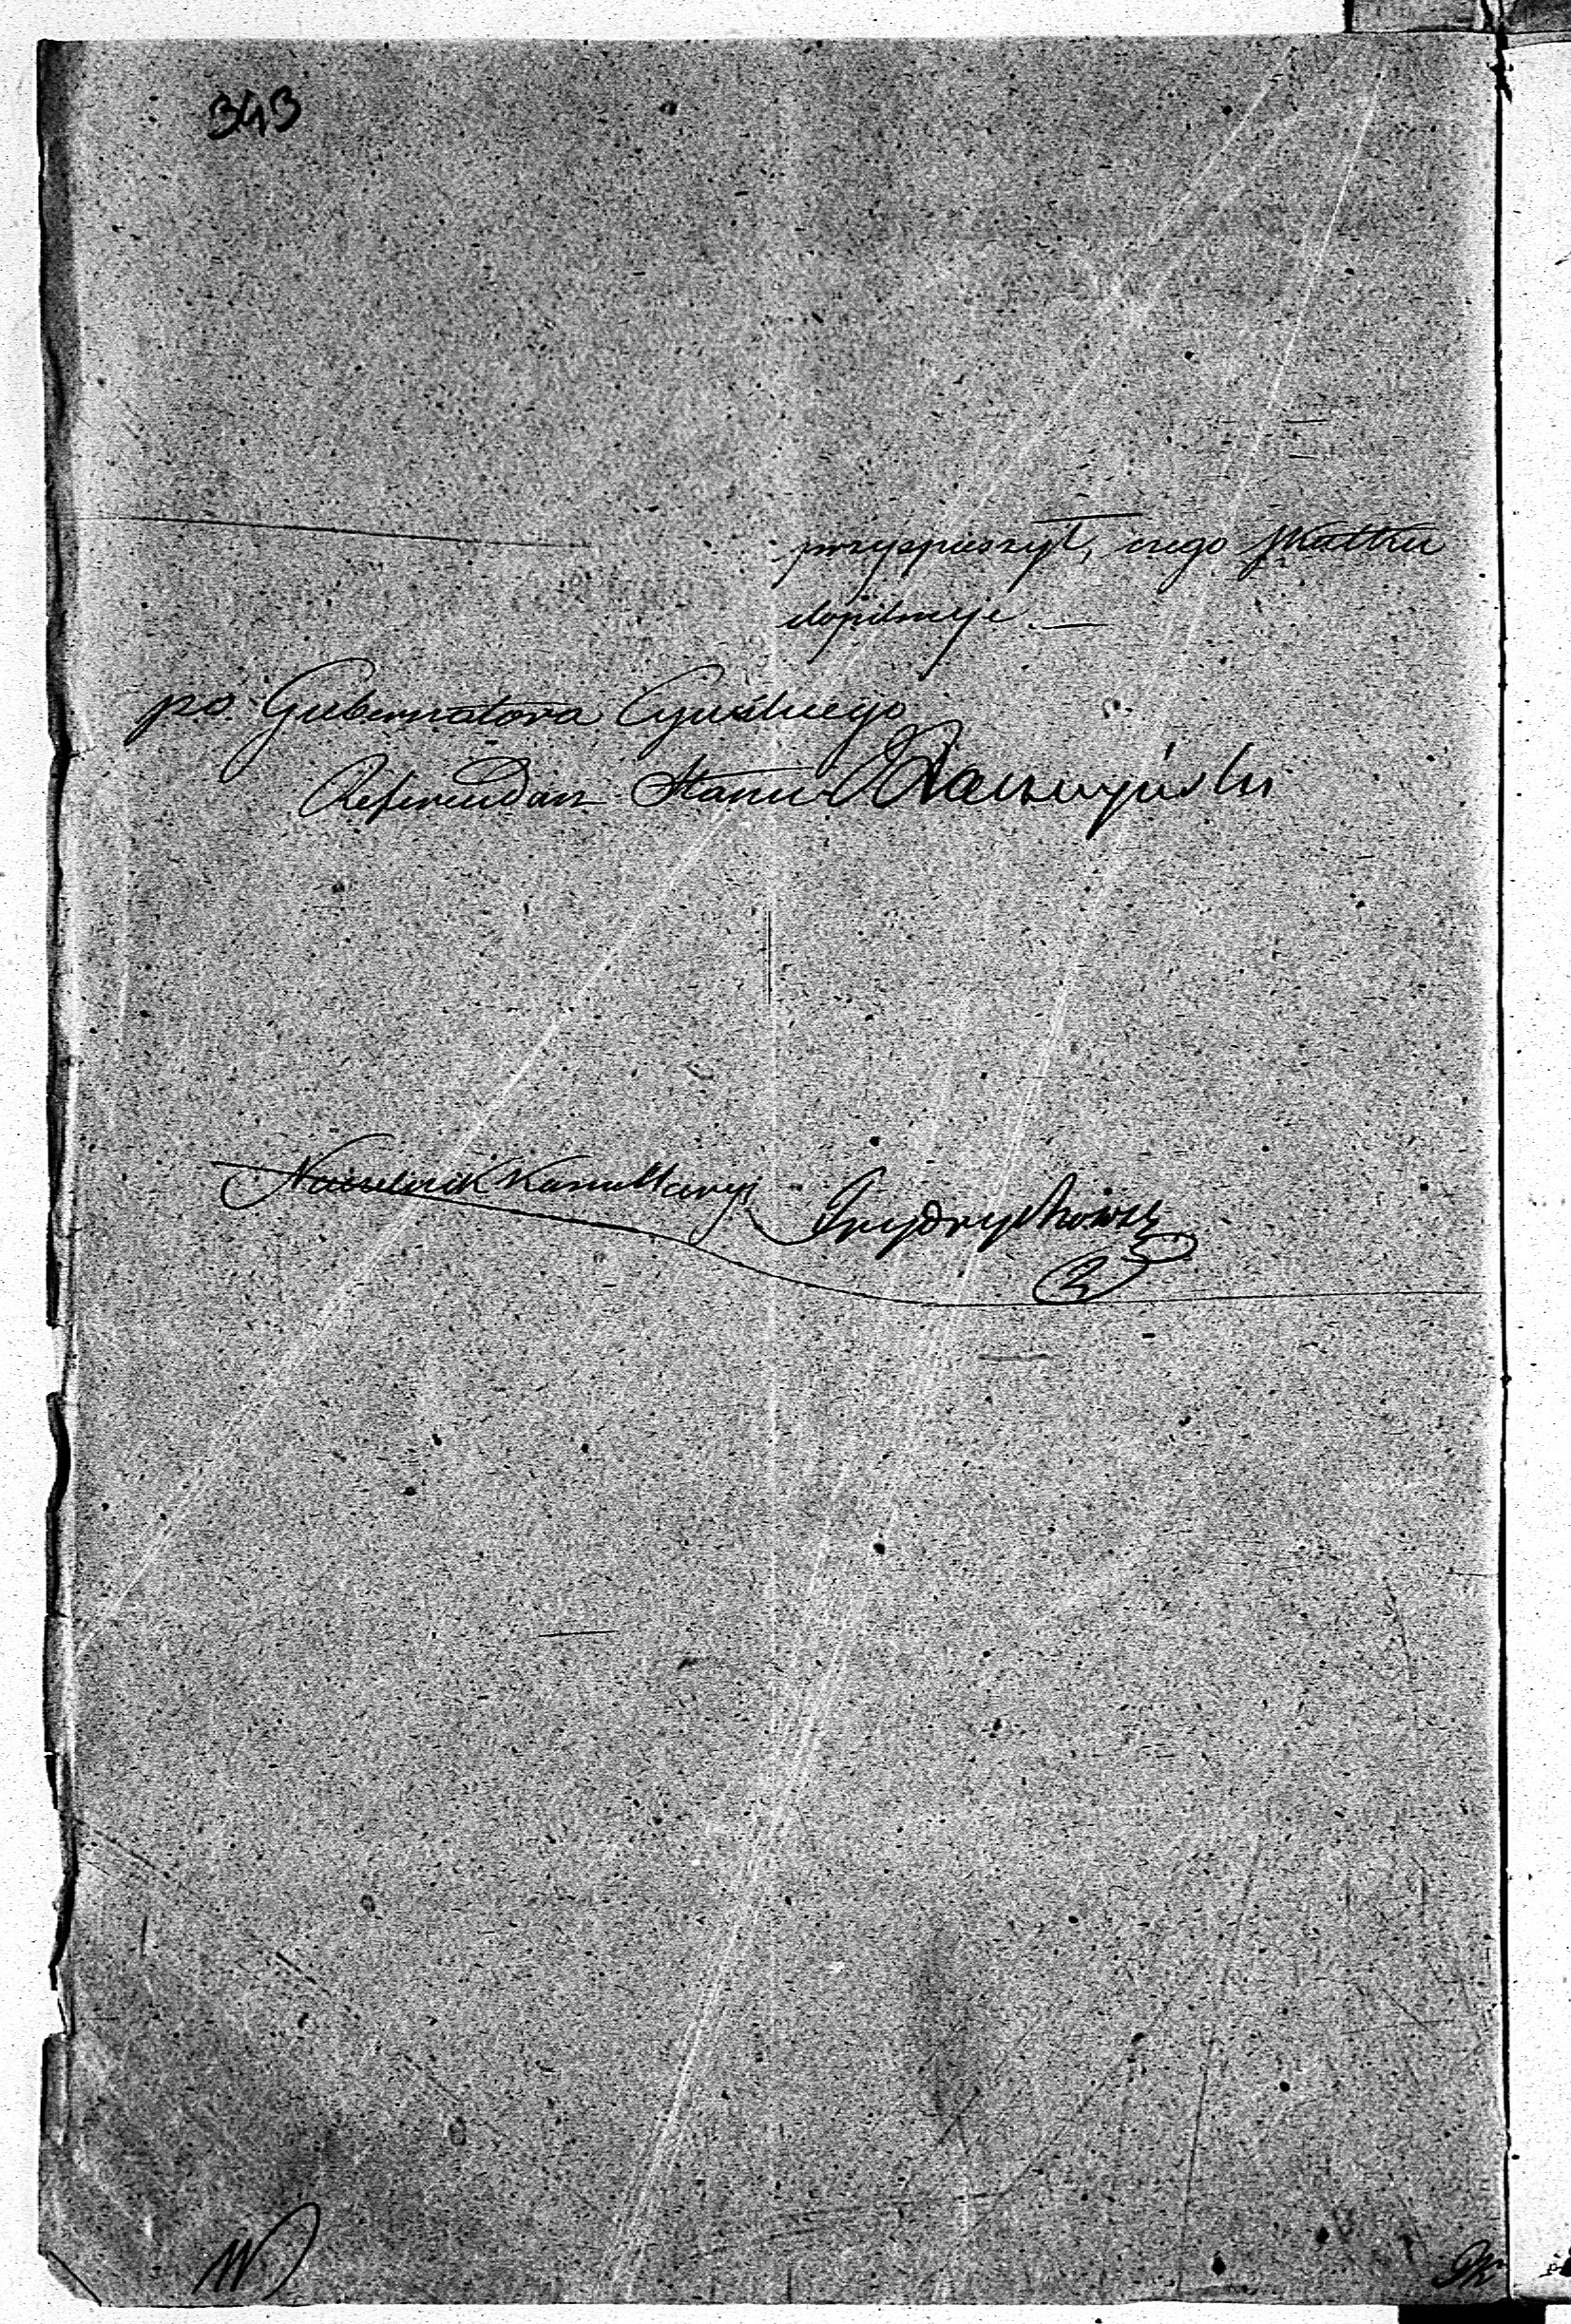 343
przyspieszył, czego skutku
dopilnuje.—
po. Gubernatora Cywilnego
Referendarz Stanu
Naczelnik Kancellaryi